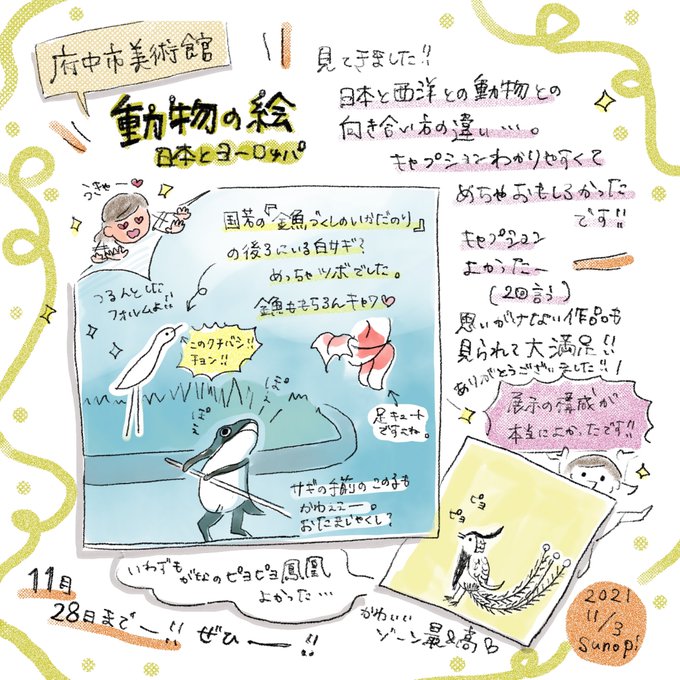 府中市美術館
動物の絵
日本とヨーロッパ
見てきました!!
日本と西洋との動物との
向き合い方の違い…。
キャプションわかりやすくて
めちゃおもしろかった
です!!
キャプション
よかったー
(2回言う)
思いがけない作品も
見られて大満足!!
ありがとうございました!!
展示の構成が
本当によかったです!!
うきゃー♡
国芳の『金魚づくしのいかだのり』
の後ろにいる白サギ?
めっちゃツボでした。
金魚ももちろんキャワ♡
つるんとした
フォルムよ!!
このクチバシ!!
チョン!!
足キュート
ですよね。
ぽえ
ぽえ
サギの手前のこの子も
かわええー。
おたまじゃくし?
ピヨ
ピヨ
いわずも
がなのピヨピヨ鳳凰
よかった…
かわいい
ゾーン最&高
11月
28日までー!! ぜひー!!
2021
11/3
sunopi